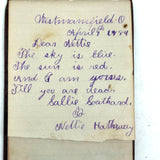 Westmansfield O.
April 8th 1884
Dear Nettie
The sky is blue.
The sun is red.
And I am yours
Till you are dead.
Sallie Eastland,
To
Nettie Hathaway